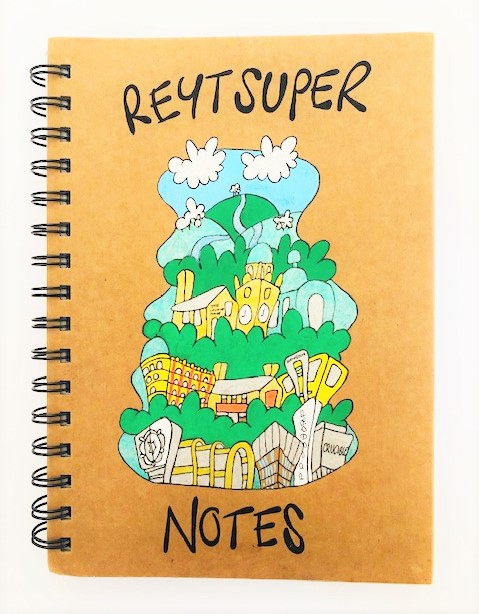 REYTSUPER
CRUCIBLE
NOTES